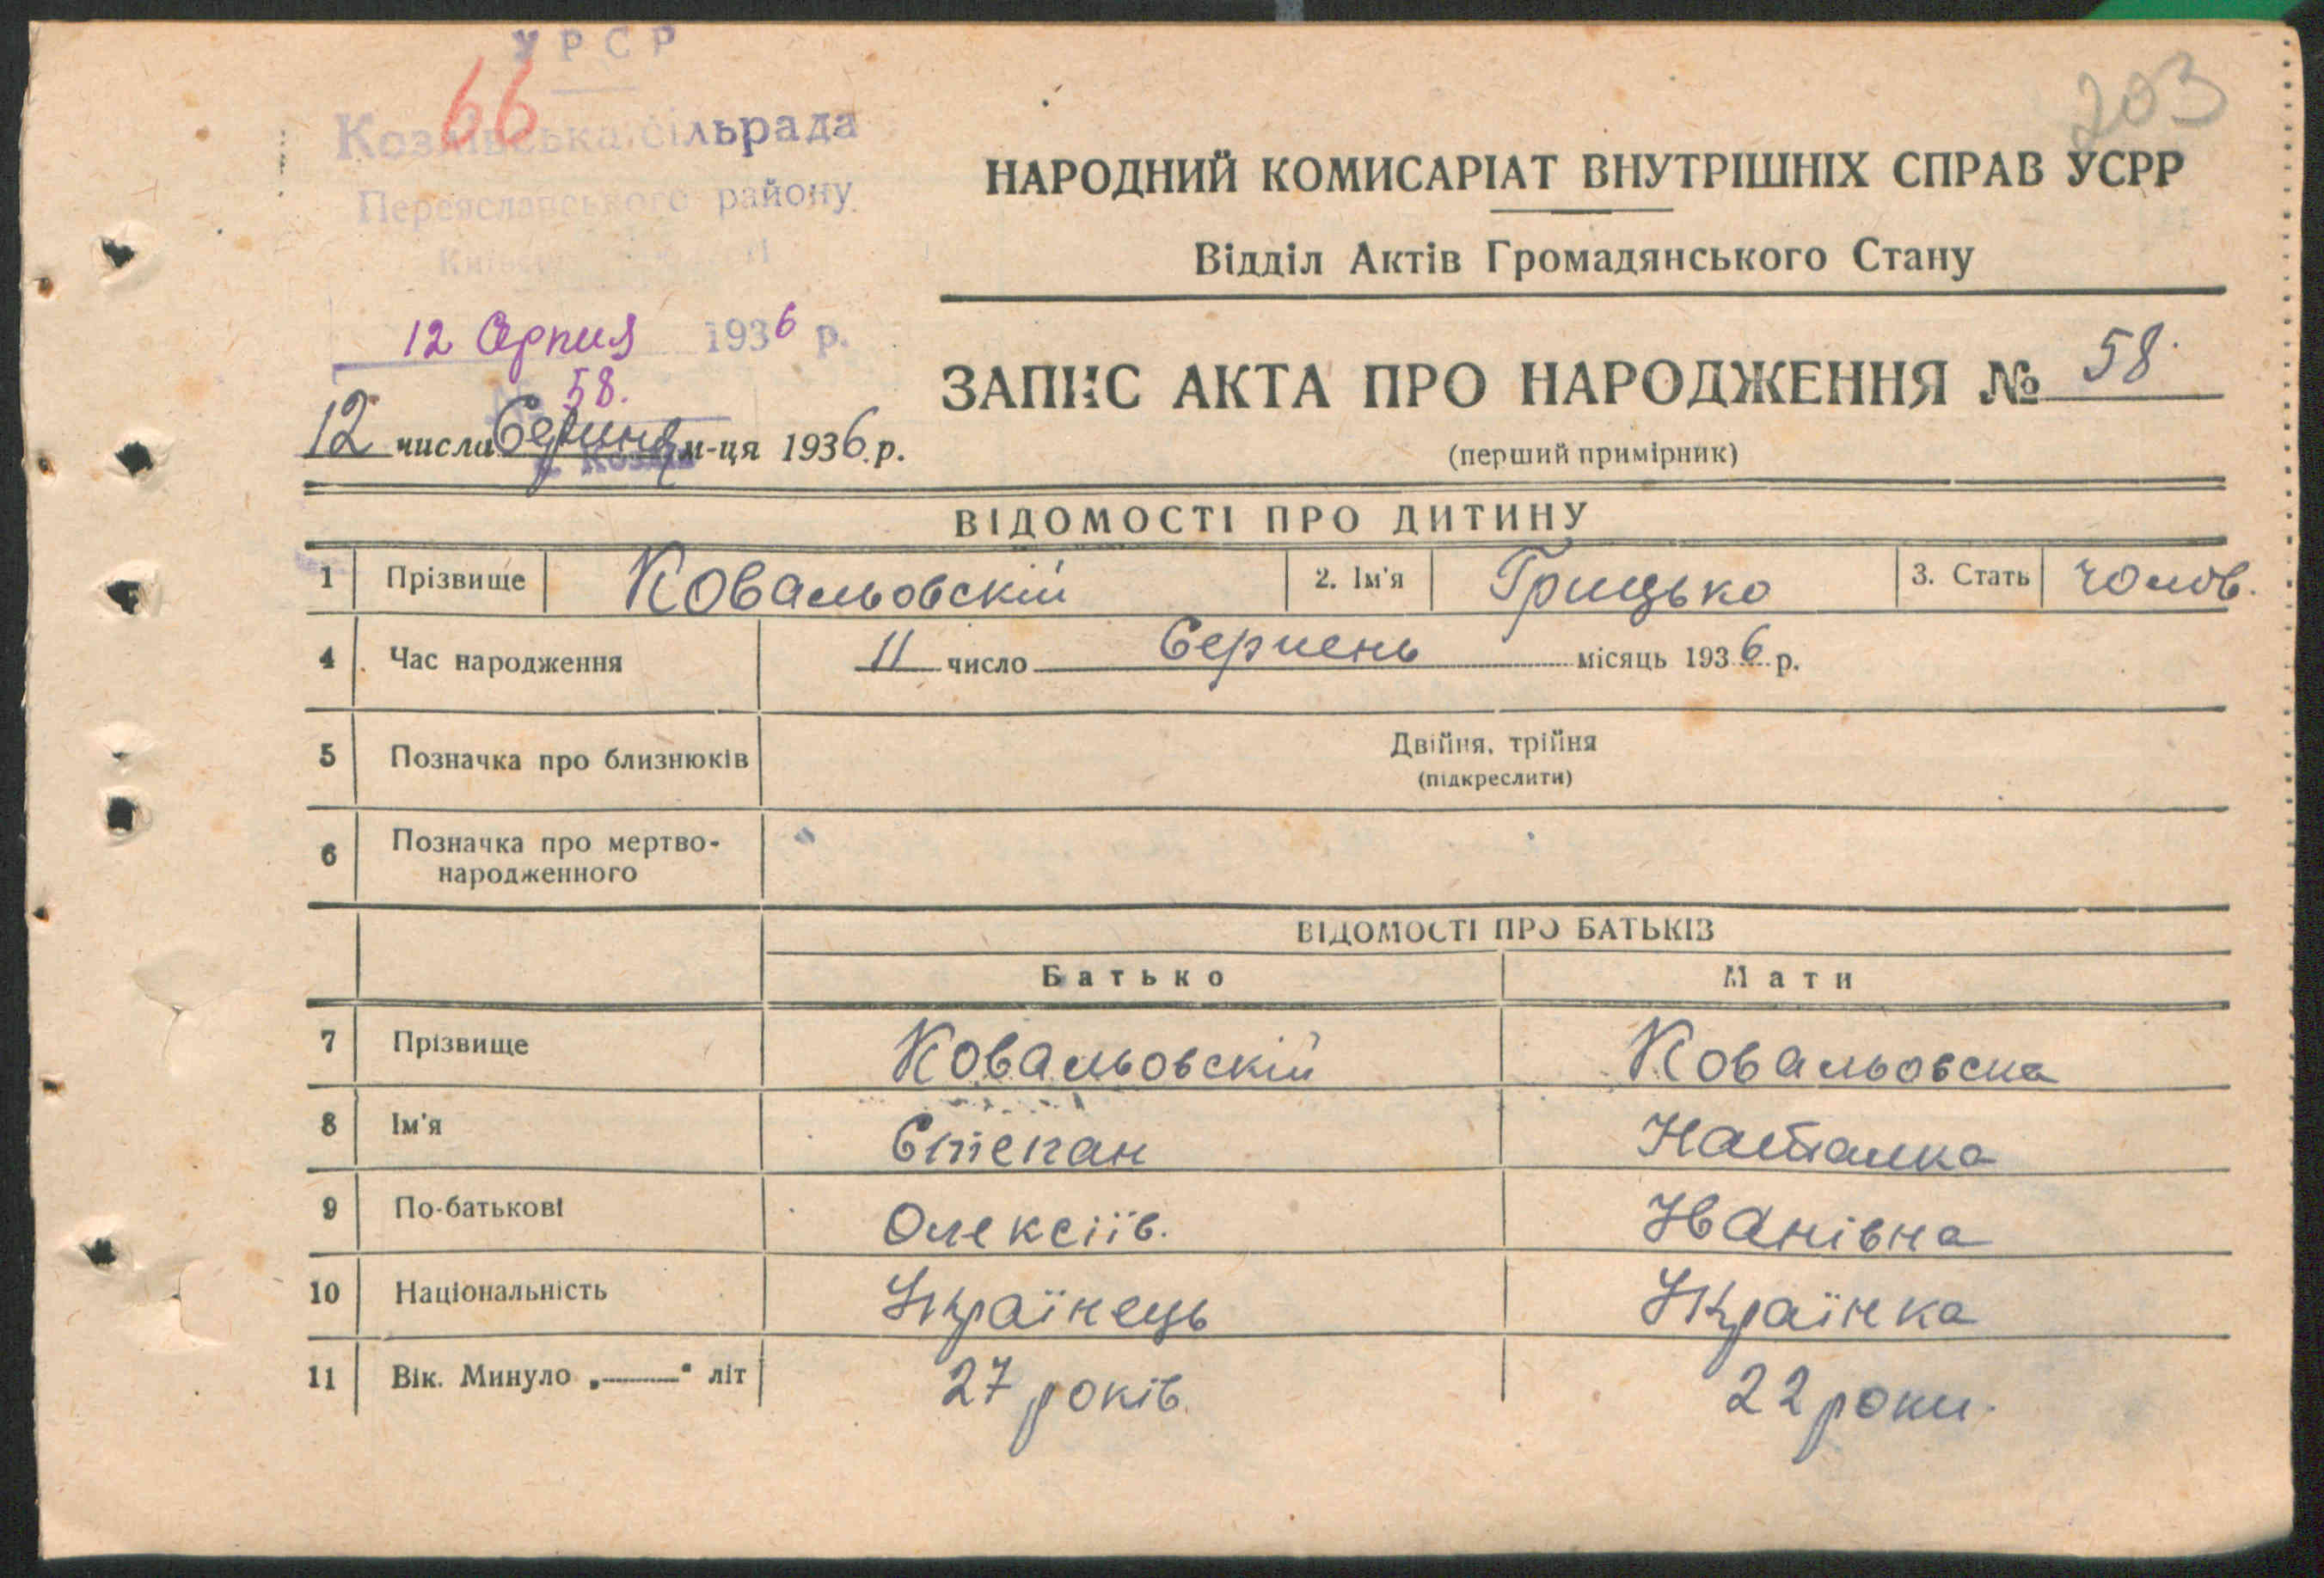 УРСР
66
Козлівська сільрада
Переяславського району
203
НАРОДНИЙ КОМИСАРІАТ ВНУТРІШНІХ СПРАВ УСРР
Відділ Актів Громадянського Стану
12 Серпня 1936 р.
№ 58.
ЗАПИС АКТА ПРО НАРОДЖЕННЯ № 58
12 числа Серпня м-ця 1936 р.
(перший примірник)
ВІДОМОСТІ ПРО ДИТИНУ
1 Прізвище Ковальовскій 2. Ім'я Грицько 3. Стать чолов.
4 Час народження 11 число Серпень місяць 1936 р.
5 Позначка про близнюків Двійня, трійня
(підкреслити)
6 Позначка про мертво-
народженного
ВІДОМОСТІ ПРО БАТЬКІВ
Батько Мати
7 Прізвище Ковальовскій Ковальовска
8 Ім'я Степан Наталка
9 По-батькові Олексіїв. Іванівна
10 Національність Українець Українка
11 Вік. Минуло „——" літ 27 років. 22 роки.